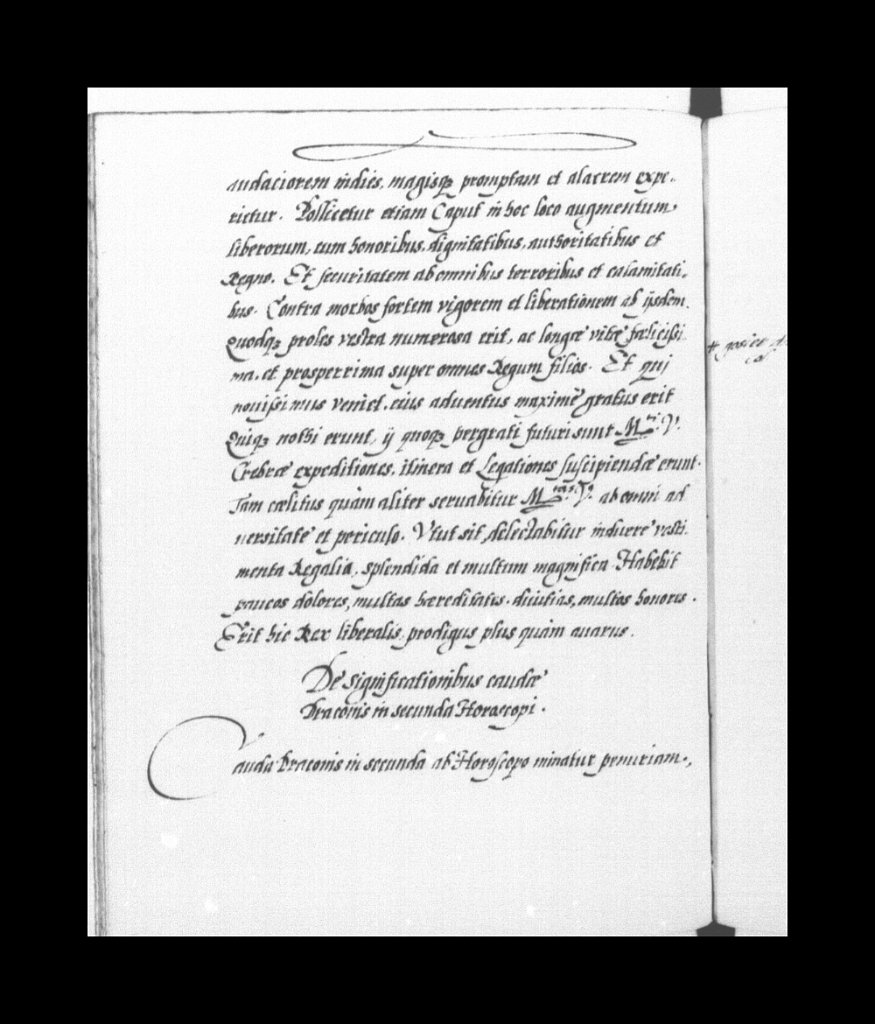 audaciorem indies, magisq; promptam et alacrem expe-
rietur. Pollicetur etiam Caput in hoc loco augmentum
liberorum, cum honoribus, dignitatibus, authoritatibus et
Regno. Et securitatem ab omnibus terroribus et calamitati-
bus. Contra morbos fortem vigorem et liberationem ab ijsdem.
Quodq; proles vestra numerosa erit, ac longæ vitæ fælicissi-
ma, et prosperrima super omnes Regum filios. Et qui
nouissimus veniet, eius aduentus maximè gratus erit
Quiq; nothi erunt, ij quoq; pergrati futuri sunt M.ti V.
Crebræ expeditiones, itinera et Legationes suscipiendæ erunt.
Tam cælitus quàm aliter seruabitur M.tas V.a ab omni ad
uersitate et periculo. Vtut sit, delectabitur induere vesti-
menta Regalia, splendida et multum magnifica. Habebit
paucos dolores, multas hæreditates, diuitias, multos honores.
Erit hic Rex liberalis, prodigus plus quàm auarus.
De significationibus caudæ
Draconis in secunda Horoscopi.
Cauda Draconis in secunda ab Horoscopo minatur penuriam,